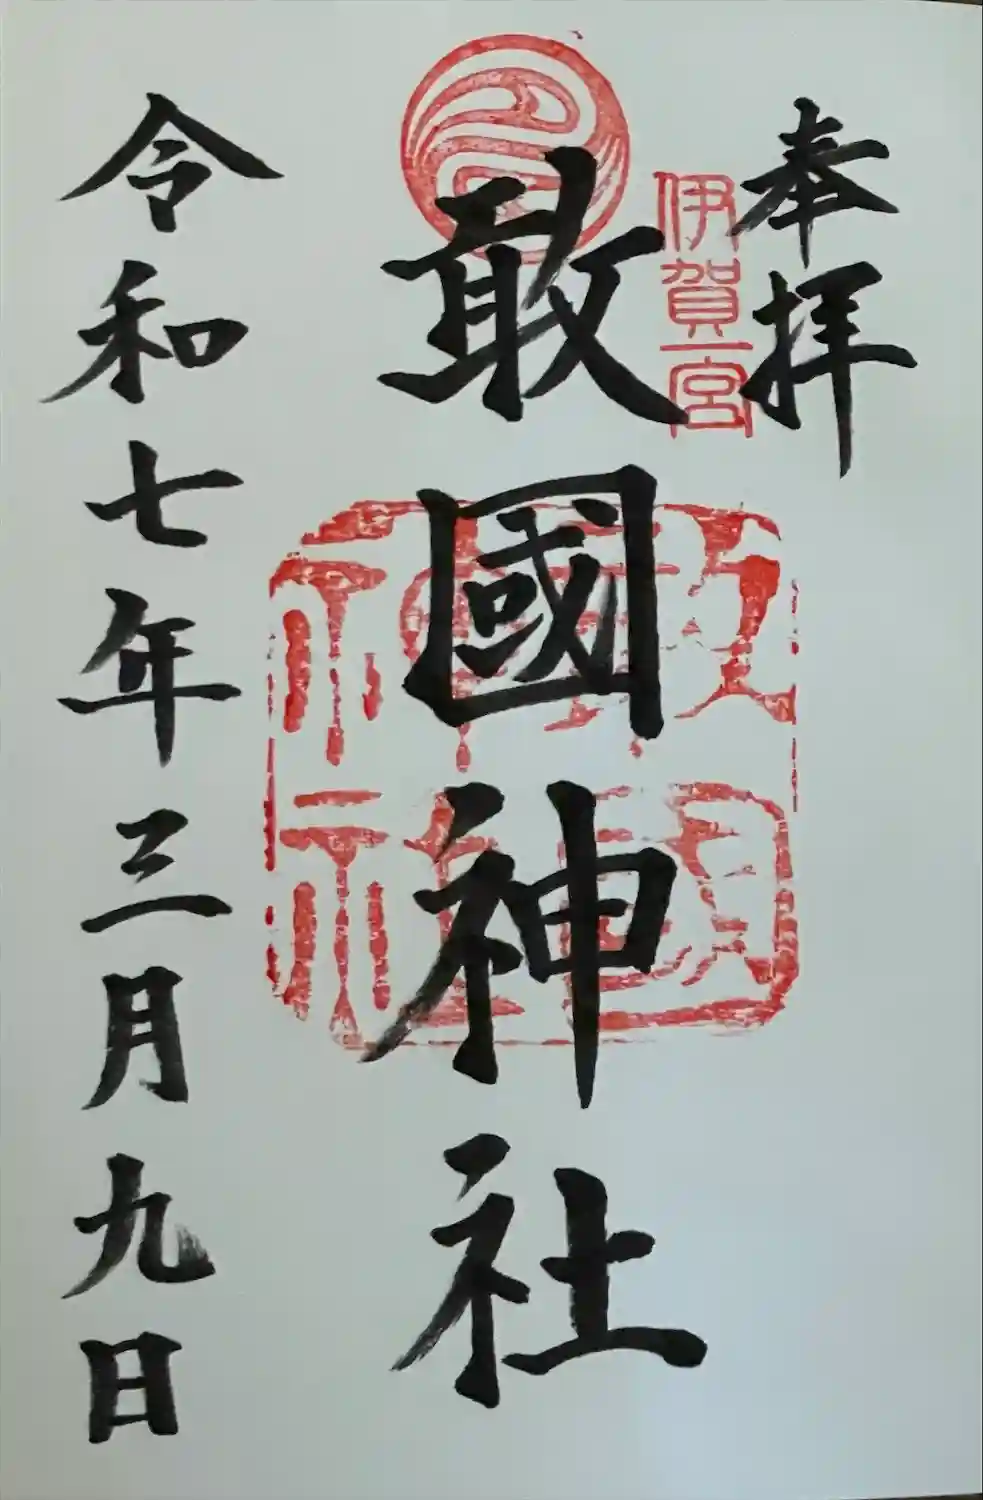 奉拝
伊賀一宮
敢國神社
敢國
神社
令和七年三月九日